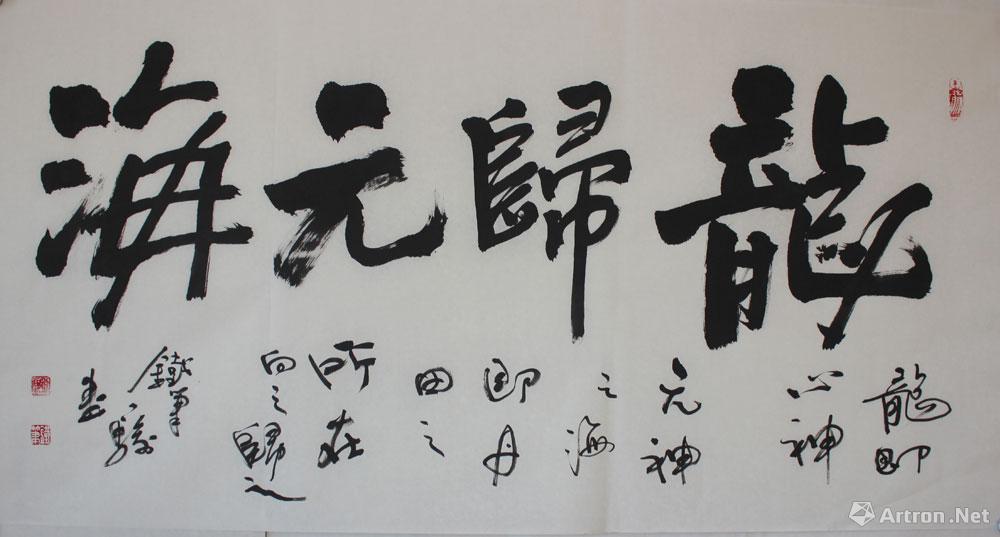 龍歸元海
龍即
心神
元神
之海
即丹
田之
所在
向之歸之
鐵軍
書
Artron.Net